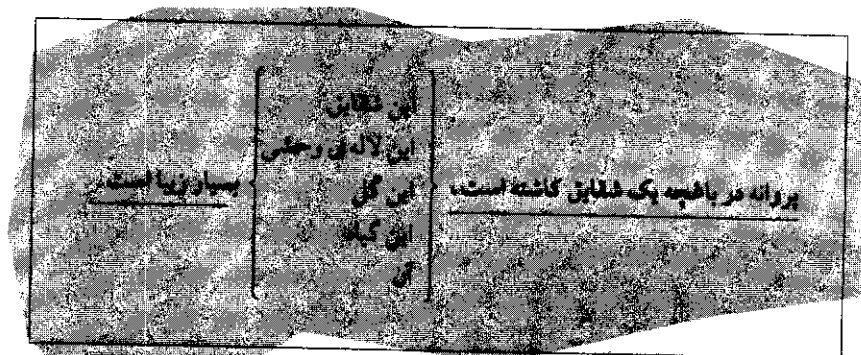 پروانه در باغچه یک شقایق کاشته است،
این شقایق
این لاله‌ی وحشی
این گل
این گیاه
آن
بسیار زیبا است.